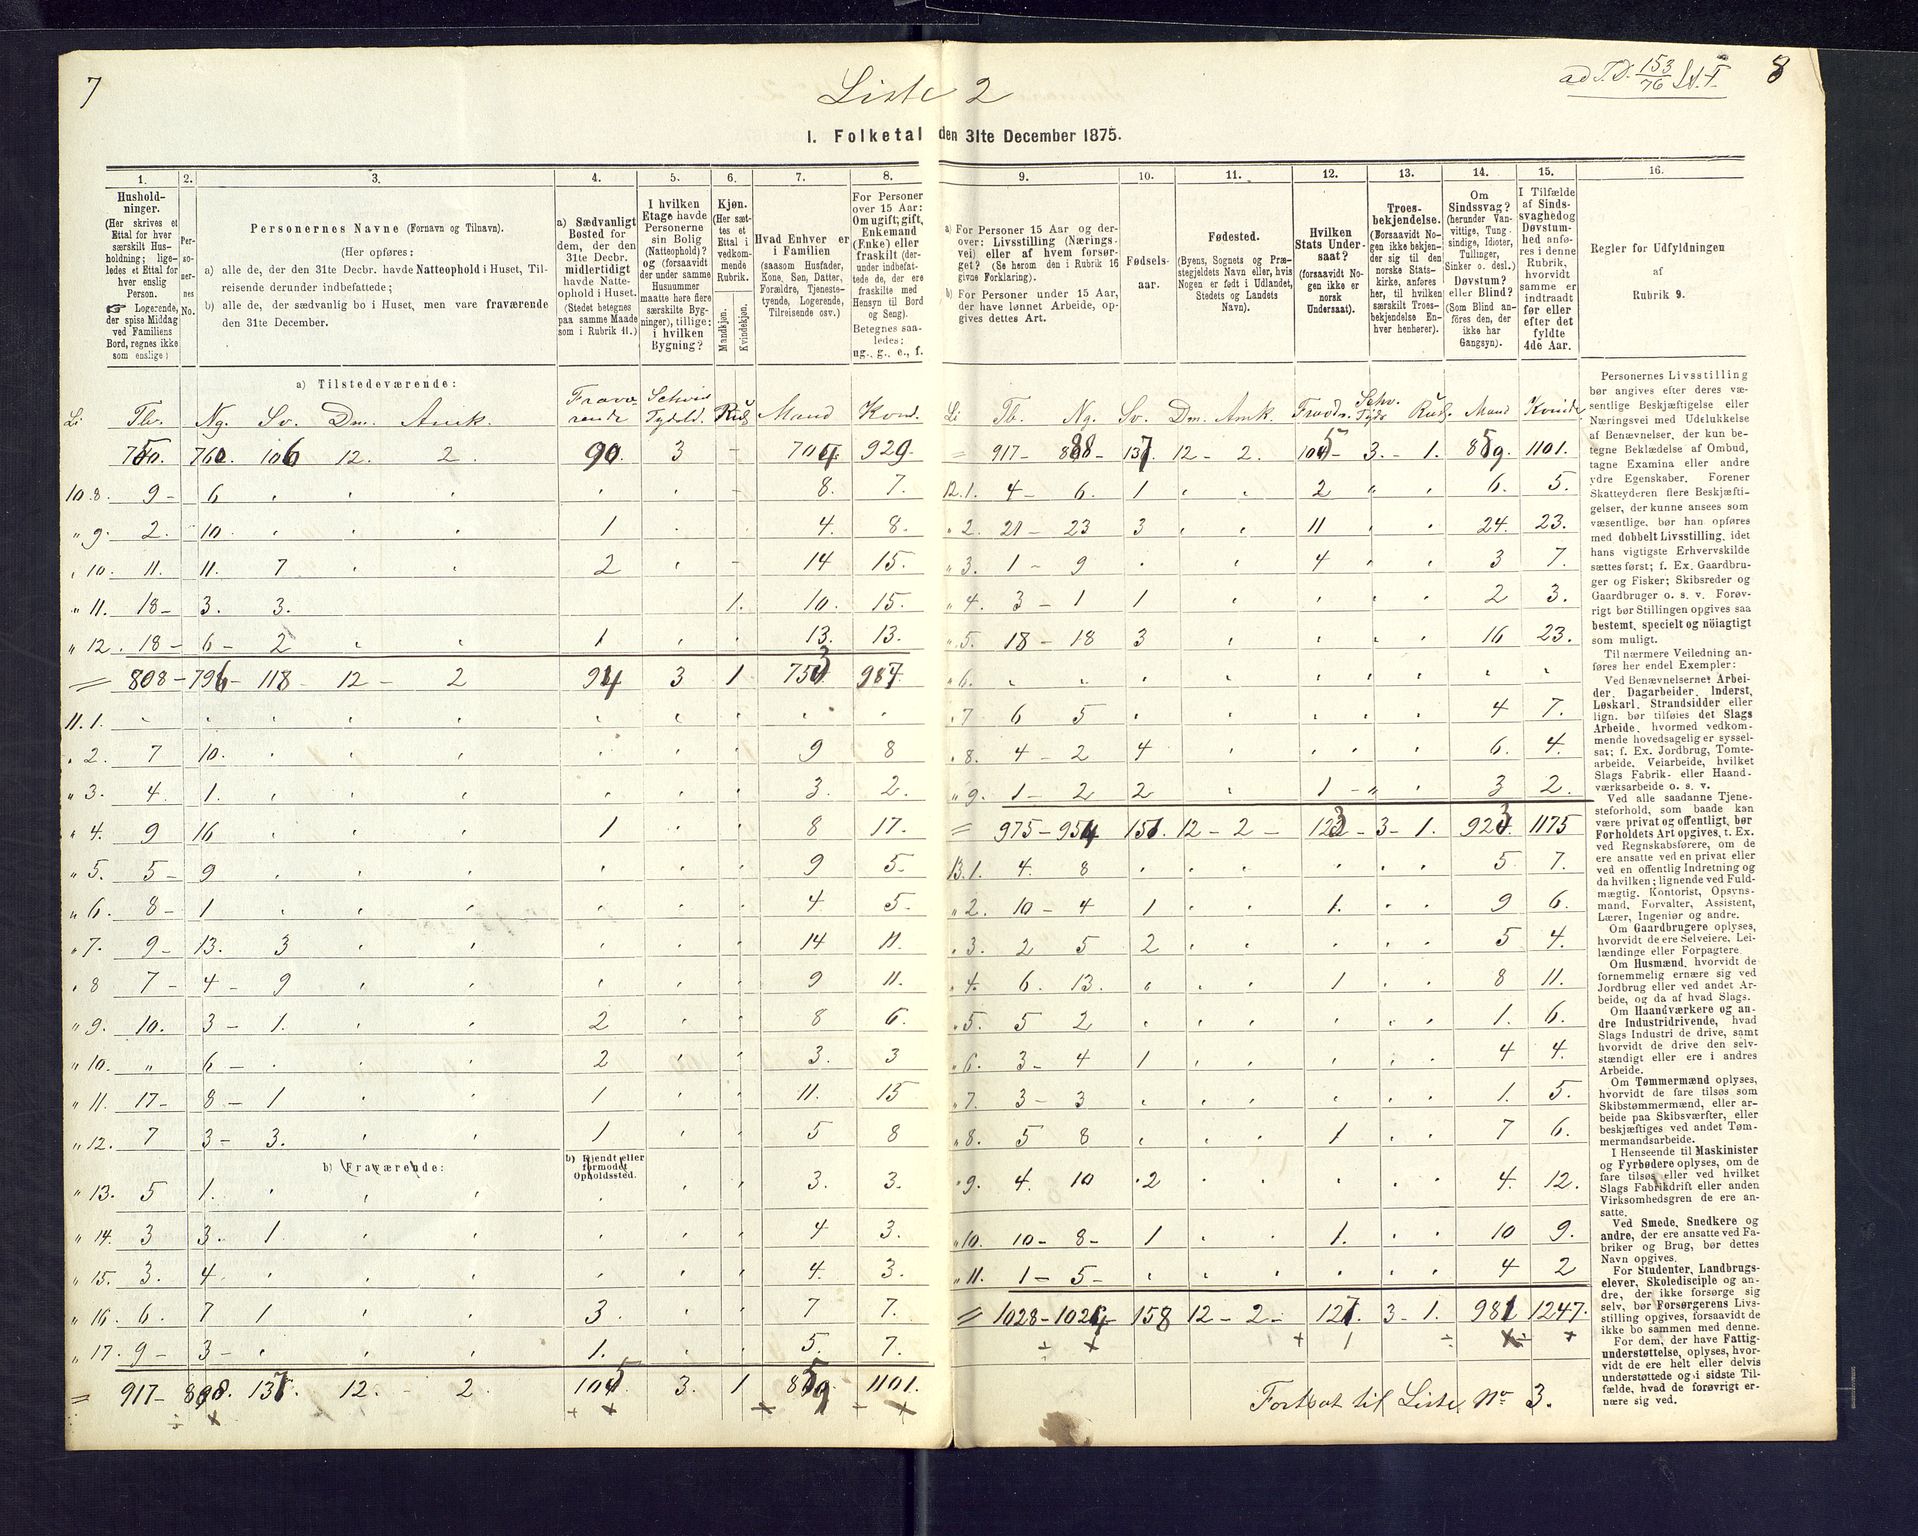 7
Liste 2
ad T.D. 153/76 Lit. I
8
1. Folketal den 31te December 1875.
1. 2. 3. 4. 5. 6. 7. 8. 9. 10. 11. 12. 13. 14. 15. 16.
Husholdninger.
(Her skrives et Ettal for hver særskilt Husholdning; ligeledes et Ettal for hver enslig Person.
☞ Logerende, der spise Middag ved Familiens Bord, regnes ikke som enslige)
Personernes No.
Personernes Navne (Fornavn og Tilnavn).
(Her opføres:
a) alle de, der den 31te Decbr. havde Natteophold i Huset, Tilreisende derunder indbefattede;
b) alle de, der sædvanlig bo i Huset, men vare fraværende den 31te December.
a) Sædvanligt Bosted for dem, der den 31te Decbr. midlertidigt havde Natteophold i Huset. (Stedet betegnes paa samme Maade som i Rubrik 11.)
I hvilken Etage havde Personerne sin Bolig (Natteophold)? og (forsaavidt der under samme Husnummer maatte høre flere særskilte Bygninger), tillige: i hvilken Bygning?
Kjøn. (Her sættes et Ettal i vedkommende Rubrik.
Mandkjøn.
Kvindekjøn.
Hvad Enhver er i Familien
(saasom Husfader, Kone, Søn, Datter, Forældre, Tjenestetyende, Logerende, Tilreisende osv.)
For Personer over 15 Aar: Om ugift, gift, Enkemand (Enke) eller fraskilt (derunder indbefattede de, der ere fraskilte med Hensyn til Bord og Seng).
Betegnes saaledes: ug., g., e., f.
a) For Personer 15 Aar og derover: Livsstilling (Næringsvei) eller af hvem forsørget? (Se herom den i Rubrik 16 givne Forklaring).
b) For Personer under 15 Aar, der have lønnet Arbeide, opgives dettes Art.
Fødselsaar.
Fødested.
(Byens, Sognets og Præstegjeldets Navn eller, hvis Nogen er født i Udlandet, Stedets og Landets Navn).
Hvilken Stats Undersaat?
(forsaavidt Nogen ikke er norsk Undersaat).
Troesbekjendelse.
(Forsaavidt Nogen ikke bekjender sig til den norske Statskirke, anføres her, til hvilken særskilt Troesbekjendelse Enhver henhører).
Om Sindssvag? (herunder Vanvittige, Tungsindige, Idioter, Tullinger, Sinker o. desl.) Døvstum? eller Blind? (Som Blind anføres den, der ikke har Gangsyn).
I Tilfælde af Sindssvaghed og Døvstumhed anføres i denne Rubrik, hvorvidt samme er indtraadt før eller efter det fyldte 4de Aar.
Regler for Udfyldningen
af
Rubrik 9.
a) Tilstedeværende:
Li Tb. Ng. Sv. Dm. Amk. Fraværende Rus Mand Kvind.
Li Tb. Ng. Sv. Dm. Amk. Fravd. Rus Mand Kvinde
750. 760. 106 12. 2. 90. 3 - 704 929.
10.8. 9- 6 8. 7.
" 9. 2. 10. 1 4. 8.
" 10. 11. 11. 7 2 14 15.
" 11. 18- 3. 3. 1. 10. 15.
" 12. 18- 6- 2 1 13. 13.
808- 796- 118- 12- 2 94 3 1 753 987.
11.1.
" 2. 7 10. 9 8
" 3. 4. 1. 3. 2.
" 4. 9 16 1 8 17.
" 5. 5- 9 9 5.
" 6. 8- 1 4 5.
" 7. 9- 13. 3 14 11.
" 8 7- 4- 9 9 11.
" 9. 10. 3- 1. 2 8 6.
" 10. " 6- 2 3. 3
" 11. 17- 8- 1 1 11. 15
" 12. 7 3- 3. 1 5 8
b) Fraværende:
b) Kjendt eller formodet Opholdssted.
" 13. 5 1. 3. 3.
" 14. 3 3. 1 4 3.
" 15. 3. 4. 4. 3.
" 16. 6. 7 1 3. 7 7.
" 17. 9- 3- 1. 5. 7.
917- 888. 137. 12. - 2. 105 3. 1 859 1101.
917- 888- 137 12- 2. 105- 3.- 1. 859. 1101.
12.1. 4- 6. 1 2 6. 5.
" 2. 21- 23 3 11 24. 23.
" 3. 1- 9 4 3 7.
" 4. 3- 1 1 2 3.
" 5. 18- 18 3 16 23.
" 6.
" 7 6 5 4 7.
" 8. 4- 2 4 6. 4.
" 9. 1- 2 2 1- 3 2.
975- 954 151. 12- 2- 123- 3- 1. 923. 1175
13.1. 4. 8 5 7.
" 2. 10- 4 1 1. 9 6.
" 3. 2 5 2 5 4.
" 4. 6. 13. 1 8 11.
" 5. 5 2 1. 6.
" 6. 3- 4 1 4 4.
" 7. 3- 3 1. 5.
" 8. 5 8 1 7 6.
" 9. 4. 10 2 4. 12.
" 10. 10- 8- 1 1. 10 9.
" 11. 1- 5- 4 2
1028- 1024- 158 12- 2- 127. 3- 1. 981 1247.
Fortsat til Liste No 3.
Personernes Livsstilling bør angives efter deres væsentlige Beskjæftigelse eller Næringsvei med Udelukkelse af Benævnelser, der kun betegne Beklædelse af Ombud, tagne Examina eller andre ydre Egenskaber. Forener Skatteyderen flere Beskjæftigelser, der kunne ansees som væsentlige, bør han opføres med dobbelt Livsstilling, idet hans vigtigste Erhvervskilde sættes først; f. Ex. Gaardbruger og Fisker; Skibsreder og Gaardbruger o. s. v. Forøvrigt bør Stillingen opgives saa bestemt, specielt og nöiagtigt som muligt.
Til nærmere Veiledning anføres her endel Exempler:
Ved Benævnelserne: Arbeider, Dagarbeider, Inderst, Løskarl, Strandsidder eller lign. bør tilføies det Slags Arbeide, hvormed vedkommende hovedsagelig er sysselsat; f. Ex. Jordbrug, Tomtearbeide, Veiarbeide, hvilket Slags Fabrik- eller Haandværksarbeide o. s. v.
Ved alle saadanne Tjenesteforhold, som baade kan være privat og offentligt, bør Forholdets Art opgives, t. Ex. ved Regnskabsførere, om de ere ansatte ved en privat eller ved en offentlig Indretning og da hvilken; lignende ved Fuldmægtig, Kontorist, Opsynsmand, Forvalter, Assistent, Lærer, Ingeniør og andre.
Om Gaardbrugere oplyses, hvorvidt de ere Selveiere, Leilændinge eller Forpagtere
Om Husmænd, hvorvidt de fornemmelig ernære sig ved Jordbrug eller ved andet Arbeide, og da af hvad Slags.
Om Haandværkere og andre Industridrivende, hvad Slags Industri de drive, samt hvorvidt de drive den selvstændigt eller ere i andres Arbeide.
Om Tømmermænd oplyses, hvorvidt de fare tilsøs som Skibstømmermænd, eller arbeide paa Skibsværfter, eller beskjæftiges ved andet Tømmermandsarbeide.
I Henseende til Maskinister og Fyrbødere oplyses, om de fare tilsøs eller ved hvilket Slags Fabrikdrift eller anden Virksomhedsgren de ere ansatte.
Ved Smede, Snedkere og andre, der ere ansatte ved Fabriker og Brug, bør dettes Navn opgives.
For Studenter, Landbrugselever, Skoledisciple og andre, der ikke forsørge sig selv, bør Forsørgerens Livsstilling opgives, forsaavidt de ikke bo sammen med denne.
For dem, der have Fattigunderstøttelse, oplyses, hvorvidt de ere helt eller delvis understøttede og i sidste Tilfælde, hvad de forøvrigt ernære sig ved.